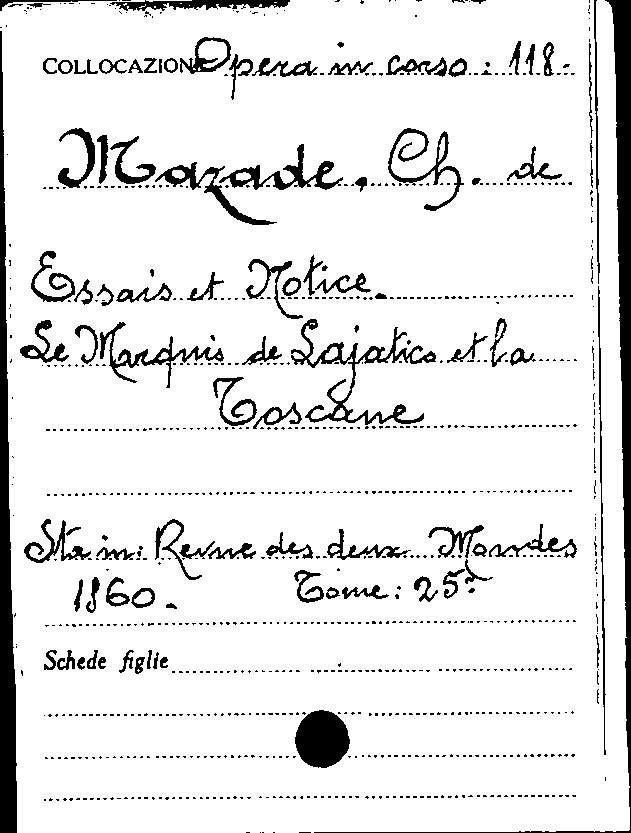 COLLOCAZIONE Opera in corso: 118.
Mazade. Ch. de
Essais et Notice.
Le Marquis de Lajatico et la
Toscane
Sta in: Revue des deux Mondes
1860. Tome: 25º
Schede figlie